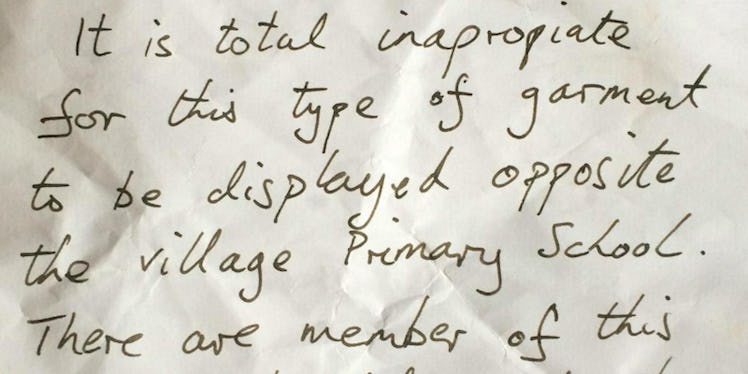 It is total inapropiate
for this type of garment
to be displayed opposite
the village Primary School.
There are member of this